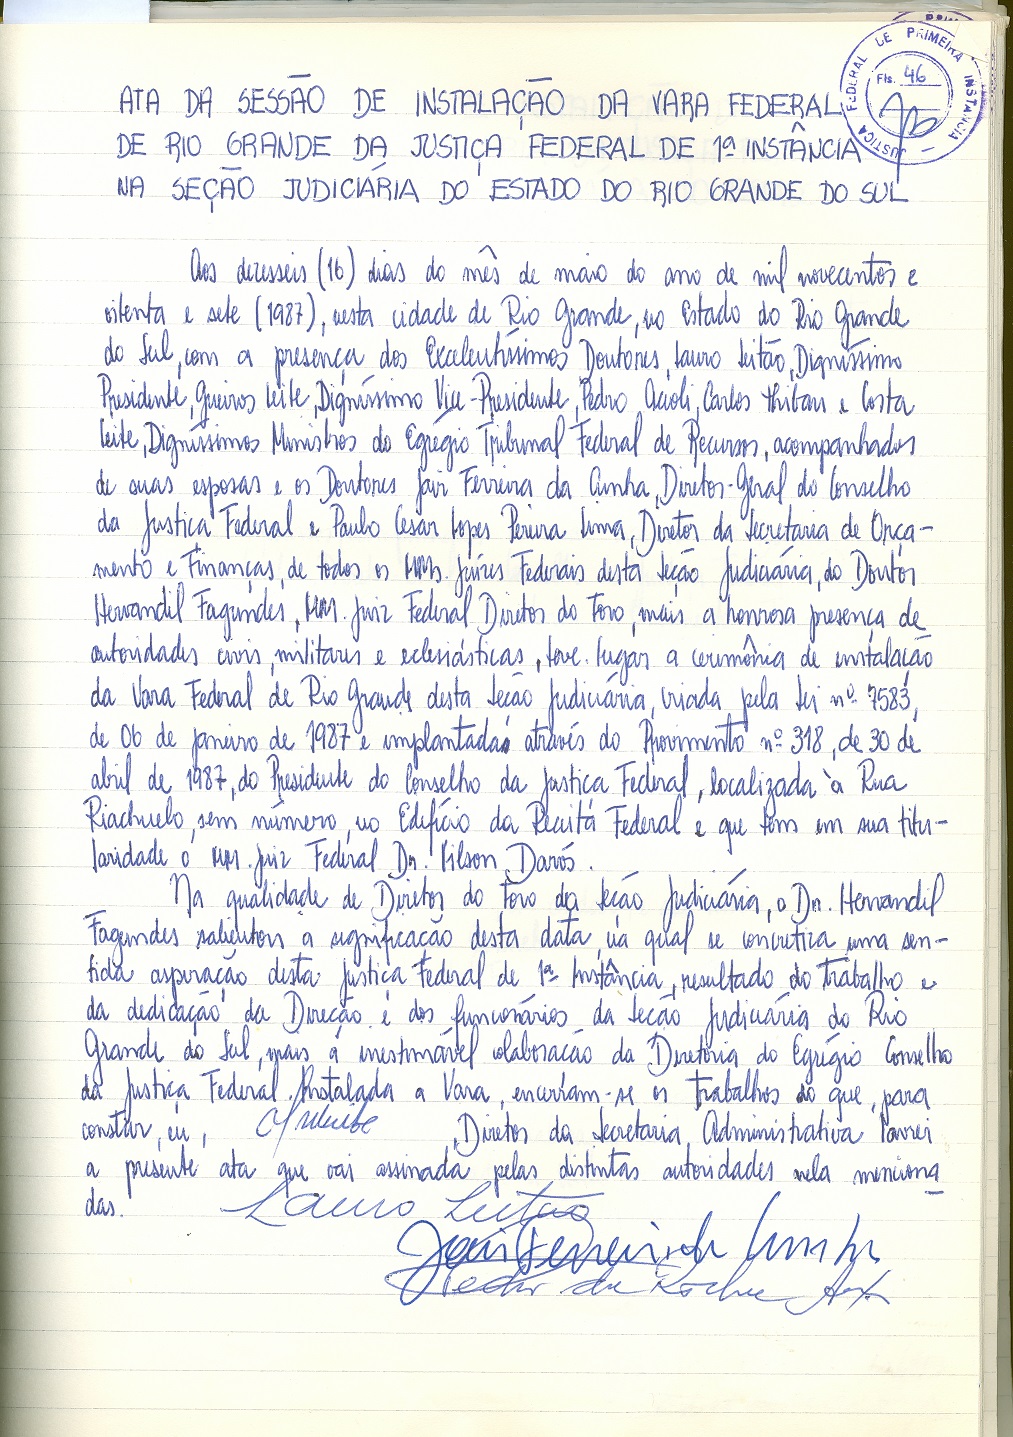 JUSTIÇA FEDERAL DE PRIMEIRA INSTÂNCIA
Fls. 46
ATA DA SESSÃO DE INSTALAÇÃO DA VARA FEDERAL
DE RIO GRANDE DA JUSTIÇA FEDERAL DE 1ª INSTÂNCIA
NA SEÇÃO JUDICIÁRIA DO ESTADO DO RIO GRANDE DO SUL
Aos dezesseis (16) dias do mês de maio do ano de mil novecentos e
oitenta e sete (1987), nesta cidade de Rio Grande, no Estado do Rio Grande
do Sul, com a presença dos Excelentíssimos Doutores, Lauro Leitão, Digníssimo
Presidente, Gueiros Leite, Digníssimo Vice-Presidente, Pedro Acioli, Carlos Thibau e Costa
Leite, Digníssimos Ministros do Egrégio Tribunal Federal de Recursos, acompanhados
de suas esposas e os Doutores Jair Ferreira da Cunha, Diretor-Geral do Conselho
da Justiça Federal e Paulo Cesar Lopes Pereira Lima, Diretor da Secretaria de Orça-
mento e Finanças, de todos os MMs. Juízes Federais desta Seção Judiciária, do Doutor
Hervandil Fagundes, MM. Juiz Federal Diretor do Foro, mais a honrosa presença de
autoridades civis, militares e eclesiásticas, teve lugar a cerimônia de instalação
da Vara Federal de Rio Grande desta Seção Judiciária, criada pela Lei nº 7583,
de 06 de janeiro de 1987 e implantada através do Provimento nº 318, de 30 de
abril de 1987, do Presidente do Conselho da Justiça Federal, localizada à Rua
Riachuelo, sem número, no Edifício da Receita Federal e que tem em sua titu-
laridade o MM. Juiz Federal Dr. Vilson Darós.
Na qualidade de Diretor do Foro da Seção Judiciária, o Dr. Hervandil
Fagundes salientou a significação desta data, na qual se concretiza uma sen-
tida aspiração desta Justiça Federal de 1ª Instância, resultado do trabalho e
da dedicação da Direção e dos funcionários da Seção Judiciária do Rio
Grande do Sul, mais a inestimável colaboração da Diretoria do Egrégio Conselho
da Justiça Federal. Instalada a Vara, encerram-se os trabalhos do que, para
constar, eu, , Diretor da Secretaria Administrativa lavrei
a presente ata que vai assinada pelas distintas autoridades nela menciona
das. Lauro Leitão
Jair Ferreira da Cunha
Pedro da Rocha